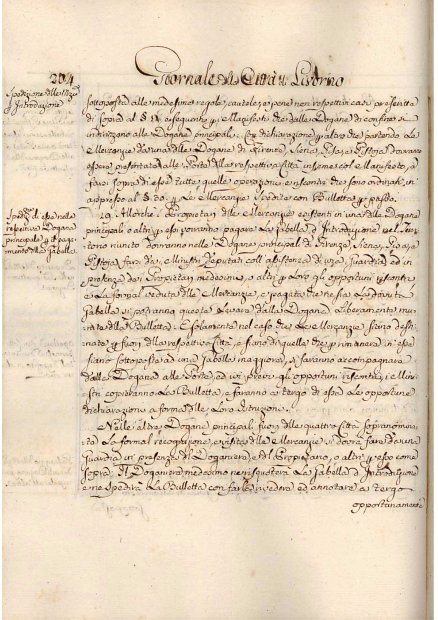 204
Giornale di Città di Livorno
Spedizione delle Merci
d'Introduzione
sottoposta alle medesime regole, cautele, e pene non respettiva prescritta
di sopra al § e Manifesti che dalle Dogane di confine si
indirizzano alle Dogane principali. Con dichiarazione che altro che partendo le
Mercanzie da una delle Dogane di Firenze, Siena, Pisa e Pistoja dovranno
essere presentate alle Porte della respettiva Città insieme col Manifesto, e
farvi sopra di esse tutte quelle operazioni e riscontri che sono ordinati, in
appresso al § 20. p. le Mercanzie spedite con Bulletta p. passo.
Sped.ne di esse nelle
respettive Dogane
principali, e il pagamento
delle Gabelle
19. Allorchè i Proprietari delle Mercanzie esistenti in una delle Dogane
principali o altri p. essi vorranno pagare la Gabella d'Introduzione nel Territorio
riunito dovranno nelle Dogane principali di Firenze, Siena, Pisa, e
Pistoja farsi da i Ministri Deputati coll'assistenza di una Guardia ed in
presenza dei Proprietari medesimi, o altri p. loro gli opportuni riscontri
e la formal veduta delle Mercanzie, e pagata che ne sia la dovuta
Gabella si potranno queste levare dalla Dogana liberamente munite
della Bulletta. E solamente nel caso che le Mercanzie sieno destinate
p. fuori della respettiva Città, e siano di quelle che p. rimanere in essa
siano sottoposte ad una Gabella maggiore, si faranno accompagnare
dalla Dogana alle Porte, ed ivi previ gli opportuni riscontri i Ministri
copieranno la Bulletta, e faranno a tergo di essa le opportune
dichiarazioni a forma delle loro Istruzioni.
Nelle altre Dogane principali fuori delle quattro Città sopranominate
la formal recognizione, e visita delle Mercanzie si dovrà fare da una
Guardia in presenza del Doganiere, e del Proprietario, o altri p. esso come
sopra. Il Doganiere medesimo ne risquoterà la Gabella d'Introduzione
e ne spedirà la Bulletta con farle rivedere ed annotare a tergo
opportunamente